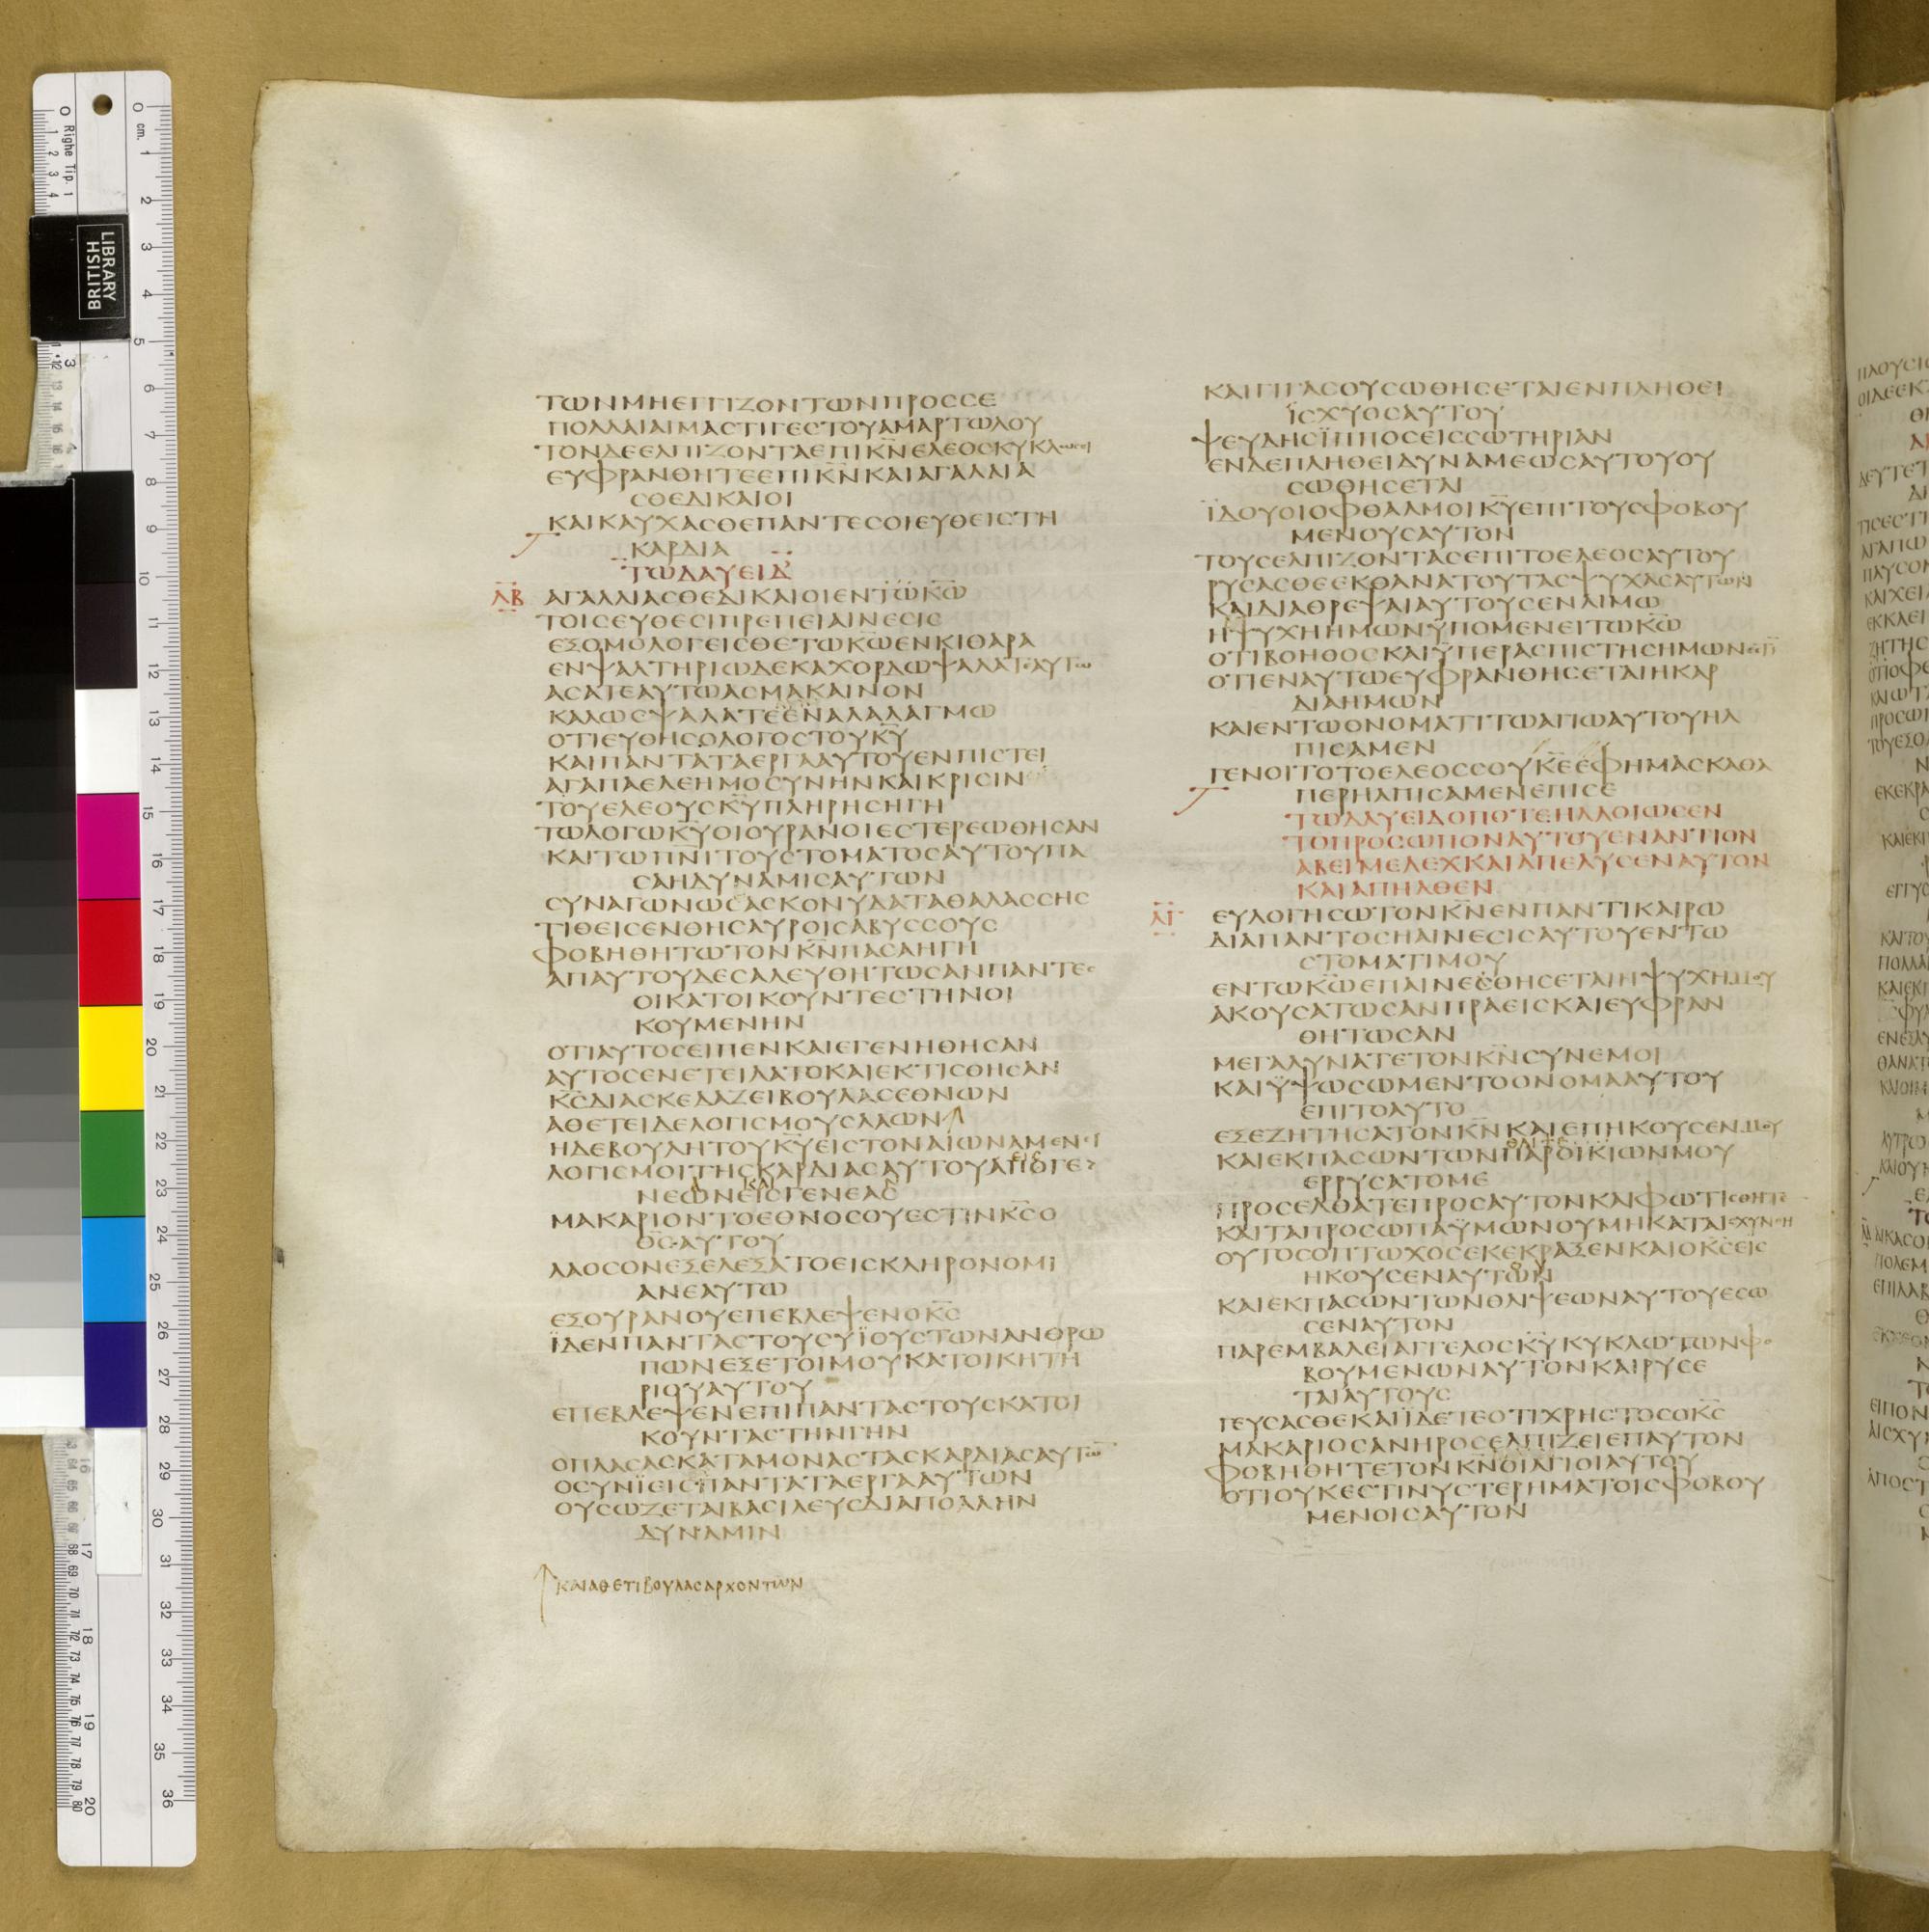 ΤΩΝΜΗΕΓΓΙΖΟΝΤΩΝΠΡΟΣΣΕ
ΠΟΛΛΑΙΑΙΜΑΣΤΙΓΕΣΤΟΥΑΜΑΡΤΩΛΟΥ
ΤΟΝΔΕΕΛΠΙΖΟΝΤΑΕΠΙΚ̅Ν̅ΕΛΕΟΣΚΥΚΛΩΣΕΙ
ΕΥΦΡΑΝΘΗΤΕΕΠΙΚ̅Ν̅ΚΑΙΑΓΑΛΛΙΑ
ΣΘΕΔΙΚΑΙΟΙ
ΚΑΙΚΑΥΧΑΣΘΕΠΑΝΤΕΣΟΙΕΥΘΕΙΣΤΗ
ΚΑΡΔΙΑ
ΤΩΔΑΥΕΙΔ
ΛΒ ΑΓΑΛΛΙΑΣΘΕΔΙΚΑΙΟΙΕΝΤΩΚ̅Ω̅
ΤΟΙΣΕΥΘΕΣΙΠΡΕΠΕΙΑΙΝΕΣΙΣ
ΕΞΟΜΟΛΟΓΕΙΣΘΕΤΩΚ̅Ω̅ΕΝΚΙΘΑΡΑ
ΕΝΨΑΛΤΗΡΙΩΔΕΚΑΧΟΡΔΩΨΑΛΑΤΑΥΤΩ
ΑΣΑΤΕΑΥΤΩΑΣΜΑΚΑΙΝΟΝ
ΚΑΛΩΣΨΑΛΑΤΕΕΝΑΛΑΛΑΓΜΩ
ΟΤΙΕΥΘΗΣΟΛΟΓΟΣΤΟΥΚ̅Υ̅
ΚΑΙΠΑΝΤΑΤΑΕΡΓΑΑΥΤΟΥΕΝΠΙΣΤΕΙ
ΑΓΑΠΑΕΛΕΗΜΟΣΥΝΗΝΚΑΙΚΡΙΣΙΝ
ΤΟΥΕΛΕΟΥΣΚ̅Υ̅ΠΛΗΡΗΣΗΓΗ
ΤΩΛΟΓΩΚ̅Υ̅ΟΙΟΥΡΑΝΟΙΕΣΤΕΡΕΩΘΗΣΑΝ
ΚΑΙΤΩΠ̅Ν̅Ι̅ΤΟΥΣΤΟΜΑΤΟΣΑΥΤΟΥΠΑ
ΣΑΗΔΥΝΑΜΙΣΑΥΤΩΝ
ΣΥΝΑΓΩΝΩΣΑΣΚΟΝΥΔΑΤΑΘΑΛΑΣΣΗΣ
ΤΙΘΕΙΣΕΝΘΗΣΑΥΡΟΙΣΑΒΥΣΣΟΥΣ
ΦΟΒΗΘΗΤΩΤΟΝΚ̅Ν̅ΠΑΣΑΗΓΗ
ΑΠΑΥΤΟΥΔΕΣΑΛΕΥΘΗΤΩΣΑΝΠΑΝΤΕΣ
ΟΙΚΑΤΟΙΚΟΥΝΤΕΣΤΗΝΟΙ
ΚΟΥΜΕΝΗΝ
ΟΤΙΑΥΤΟΣΕΙΠΕΝΚΑΙΕΓΕΝΗΘΗΣΑΝ
ΑΥΤΟΣΕΝΕΤΕΙΛΑΤΟΚΑΙΕΚΤΙΣΘΗΣΑΝ
Κ̅Σ̅ΔΙΑΣΚΕΔΑΖΕΙΒΟΥΛΑΣΕΘΝΩΝ
ΑΘΕΤΕΙΔΕΛΟΓΙΣΜΟΥΣΛΑΩΝ
ΗΔΕΒΟΥΛΗΤΟΥΚ̅Υ̅ΕΙΣΤΟΝΑΙΩΝΑΜΕΝΕΙ
ΛΟΓΙΣΜΟΙΤΗΣΚΑΡΔΙΑΣΑΥΤΟΥΑΠΟΓΕ
ΝΕΩΝΕΙΣΓΕΝΕΑΣ
ΜΑΚΑΡΙΟΝΤΟΕΘΝΟΣΟΥΕΣΤΙΝΚ̅Σ̅Ο
Θ̅Σ̅ΑΥΤΟΥ
ΛΑΟΣΟΝΕΞΕΛΕΞΑΤΟΕΙΣΚΛΗΡΟΝΟΜΙ
ΑΝΕΑΥΤΩ
ΕΞΟΥΡΑΝΟΥΕΠΕΒΛΕΨΕΝΟΚ̅Σ̅
ΪΔΕΝΠΑΝΤΑΣΤΟΥΣΥΪΟΥΣΤΩΝΑΝΘΡΩ
ΠΩΝΕΞΕΤΟΙΜΟΥΚΑΤΟΙΚΗΤΗ
ΡΙΟΥΑΥΤΟΥ
ΕΠΕΒΛΕΨΕΝΕΠΙΠΑΝΤΑΣΤΟΥΣΚΑΤΟΙ
ΚΟΥΝΤΑΣΤΗΝΓΗΝ
ΟΠΛΑΣΑΣΚΑΤΑΜΟΝΑΣΤΑΣΚΑΡΔΙΑΣΑΥΤΩ̅
ΟΣΥΝΪΕΙΣΠΑΝΤΑΤΑΕΡΓΑΑΥΤΩΝ
ΟΥΣΩΖΕΤΑΙΒΑΣΙΛΕΥΣΔΙΑΠΟΛΛΗΝ
ΔΥΝΑΜΙΝ
ΚΑΙΑΘΕΤΙΒΟΥΛΑΣΑΡΧΟΝΤΩΝ
ΚΑΙΓΙΓΑΣΟΥΣΩΘΗΣΕΤΑΙΕΝΠΛΗΘΕΙ
ΪΣΧΥΟΣΑΥΤΟΥ
ΨΕΥΔΗΣΪΠΠΟΣΕΙΣΣΩΤΗΡΙΑΝ
ΕΝΔΕΠΛΗΘΕΙΔΥΝΑΜΕΩΣΑΥΤΟΥΟΥ
ΣΩΘΗΣΕΤΑΙ
ΪΔΟΥΟΙΟΦΘΑΛΜΟΙΚ̅Υ̅ΕΠΙΤΟΥΣΦΟΒΟΥ
ΜΕΝΟΥΣΑΥΤΟΝ
ΤΟΥΣΕΛΠΙΖΟΝΤΑΣΕΠΙΤΟΕΛΕΟΣΑΥΤΟΥ
ΡΥΣΑΣΘΕΕΚΘΑΝΑΤΟΥΤΑΣΨΥΧΑΣΑΥΤΩΝ
ΚΑΙΔΙΑΘΡΕΨΑΙΑΥΤΟΥΣΕΝΛΙΜΩ
ΗΨΥΧΗΗΜΩΝΫΠΟΜΕΝΕΙΤΩΚ̅Ω̅
ΟΤΙΒΟΗΘΟΣΚΑΙΫΠΕΡΑΣΠΙΣΤΗΣΗΜΩΝ
ΟΤΙΕΝΑΥΤΩΕΥΦΡΑΝΘΗΣΕΤΑΙΗΚΑΡ
ΔΙΑΗΜΩΝ
ΚΑΙΕΝΤΩΟΝΟΜΑΤΙΤΩΑΓΙΩΑΥΤΟΥΗΛ
ΠΙΣΑΜΕΝ
ΓΕΝΟΙΤΟΤΟΕΛΕΟΣΣΟΥΚ̅Ε̅ΕΦΗΜΑΣΚΑΘΑ
ΠΕΡΗΛΠΙΣΑΜΕΝΕΠΙΣΕ
ΤΩΔΑΥΕΙΔΟΠΟΤΕΗΛΛΟΙΩΣΕΝ
ΤΟΠΡΟΣΩΠΟΝΑΥΤΟΥΕΝΑΝΤΙΟΝ
ΑΒΕΙΜΕΛΕΧΚΑΙΑΠΕΛΥΣΕΝΑΥΤΟΝ
ΚΑΙΑΠΗΛΘΕΝ
ΛΓ ΕΥΛΟΓΗΣΩΤΟΝΚ̅Ν̅ΕΝΠΑΝΤΙΚΑΙΡΩ
ΔΙΑΠΑΝΤΟΣΗΑΙΝΕΣΙΣΑΥΤΟΥΕΝΤΩ
ΣΤΟΜΑΤΙΜΟΥ
ΕΝΤΩΚ̅Ω̅ΕΠΑΙΝΕΣΘΗΣΕΤΑΙΗΨΥΧΗΜΟΥ
ΑΚΟΥΣΑΤΩΣΑΝΠΡΑΕΙΣΚΑΙΕΥΦΡΑΝ
ΘΗΤΩΣΑΝ
ΜΕΓΑΛΥΝΑΤΕΤΟΝΚ̅Ν̅ΣΥΝΕΜΟΙ
ΚΑΙΫΨΩΣΩΜΕΝΤΟΟΝΟΜΑΑΥΤΟΥ
ΕΠΙΤΟΑΥΤΟ
ΕΞΕΖΗΤΗΣΑΤΟΝΚ̅Ν̅ΚΑΙΕΠΗΚΟΥΣΕΝΜΟΥ
ΚΑΙΕΚΠΑΣΩΝΤΩΝΠΑΡΟΙΚΙΩΝΜΟΥ
ΕΡΡΥΣΑΤΟΜΕ
ΠΡΟΣΕΛΘΑΤΕΠΡΟΣΑΥΤΟΝΚΑΙΦΩΤΙΣΘΗΤΕ
ΚΑΙΤΑΠΡΟΣΩΠΑΫΜΩΝΟΥΜΗΚΑΤΑΙΣΧΥΝΘΗ
ΟΥΤΟΣΟΠΤΩΧΟΣΕΚΕΚΡΑΞΕΝΚΑΙΟΚ̅Σ̅ΕΙΣ
ΗΚΟΥΣΕΝΑΥΤΩΝ
ΚΑΙΕΚΠΑΣΩΝΤΩΝΘΛΙΨΕΩΝΑΥΤΟΥΕΣΩ
ΣΕΝΑΥΤΟΝ
ΠΑΡΕΜΒΑΛΕΙΑΓΓΕΛΟΣΚ̅Υ̅ΚΥΚΛΩΤΩΝΦΟ
ΒΟΥΜΕΝΩΝΑΥΤΟΝΚΑΙΡΥΣΕ
ΤΑΙΑΥΤΟΥΣ
ΓΕΥΣΑΣΘΕΚΑΙΪΔΕΤΕΟΤΙΧΡΗΣΤΟΣΟΚ̅Σ̅
ΜΑΚΑΡΙΟΣΑΝΗΡΟΣΕΛΠΙΖΕΙΕΠΑΥΤΟΝ
ΦΟΒΗΘΗΤΕΤΟΝΚ̅Ν̅ΟΙΑΓΙΟΙΑΥΤΟΥ
ΟΤΙΟΥΚΕΣΤΙΝΥΣΤΕΡΗΜΑΤΟΙΣΦΟΒΟΥ
ΜΕΝΟΙΣΑΥΤΟΝ
LIBRARY
BRITISH
Righe Tip. 1
cm.